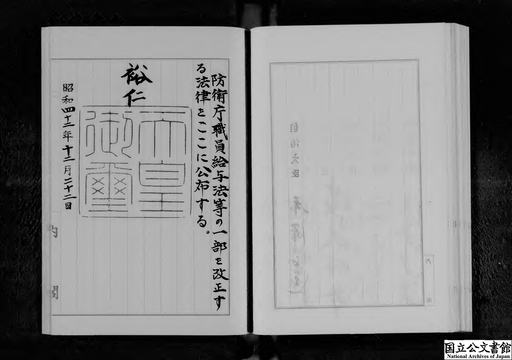 防衛庁職員給与法等の一部を改正す
る法律をここに公布する。
裕仁
天皇
御璽
昭和四十二年十二月二十二日
内閣
自治大臣
国立公文書館
National Archives of Japan